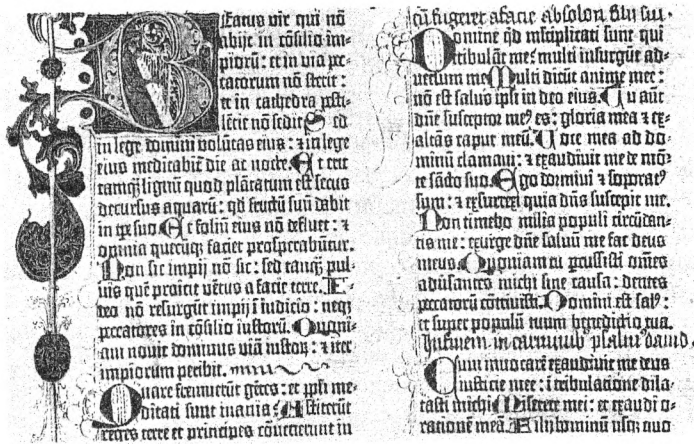 Beatus vir qui nō
abijt in cōsilio im-
piorū: et in via pec-
catorum nō stetit:
et in cathedra pesti-
lētie nō sedit. Sed
in lege domini volūtas eius: ⁊ in lege
eius meditabit̄ die ac nocte. Et erit
tamqȝ lignū quod plātatum est secus
decursus aquarū: qd̄ fructū suū dabit
in tpe suo. Et foliū eius nō defluet: ⁊
omnia quecūqȝ faciet prosperabūtur.
Non sic impij nō sic: sed tamqȝ pul-
uis quē proicit vētus a facie terre. I-
deo nō resurgūt impij ī iudicio: neqȝ
peccatores in cōsilio iustorū. Quoni-
am nouit dominus viā iustorꝫ: ⁊ iter
impiorum peribit.
Quare fremuerūt gētes: et ppl̄i me-
ditati sunt inania? Astiterūt
reges terre et principes cōuenerunt in
cū fugeret a facie absolon filii sui.
Domine qd̄ mltiplicati sunt qui
tribulāt me? multi insurgūt ad-
uersum me. Multi dicūt anime mee:
nō est salus ipsi in deo eius. Tu aūt
dn̄e susceptor meꝰ es: gloria mea ⁊ ex-
altās caput meū. Voce mea ad do-
minū clamaui: ⁊ exaudiuit me de mō-
te sācto suo. Ego dormiui ⁊ soporatꝰ
sum: ⁊ exsurrexi quia dn̄s suscepit me.
Non timebo milia populi circūdan-
tis me: exurge dn̄e saluū me fac deus
meus. Quoniam tu pcussisti om̄es
aduersantes michi sine causa: dentes
peccatorū cōtriuisti. Domini est salꝰ:
et super populū tuum benedictio tua.
In finem in carminib psalm' dauid.
Cum inuocarē exaudiuit me deus
iusticie mee: ī tribulatione dila-
tasti michi. Miserere mei: et exaudi o-
rationē meā. Filij hominū usqȝ quo